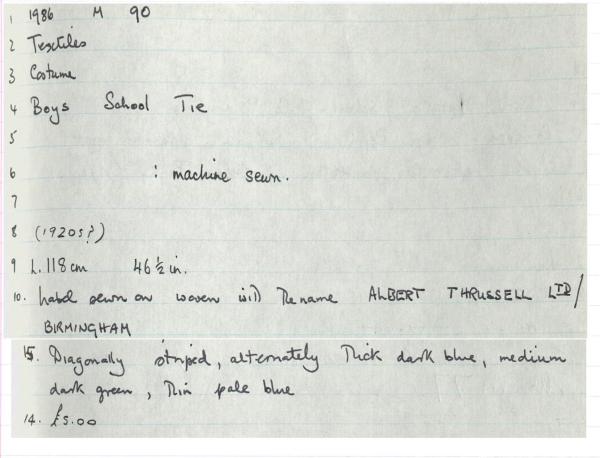 1 1986 M 90
2 Textiles
3 Costume
4 Boys School Tie
5
6 : machine sewn.
7
8 (1920s?)
9 L. 118 cm 46 ½ in.
10. Label sewn on woven with the name ALBERT THRUSSELL LTD/
BIRMINGHAM
15. Diagonally striped, alternately thick dark blue, medium
dark green, thin pale blue
14. £5.00